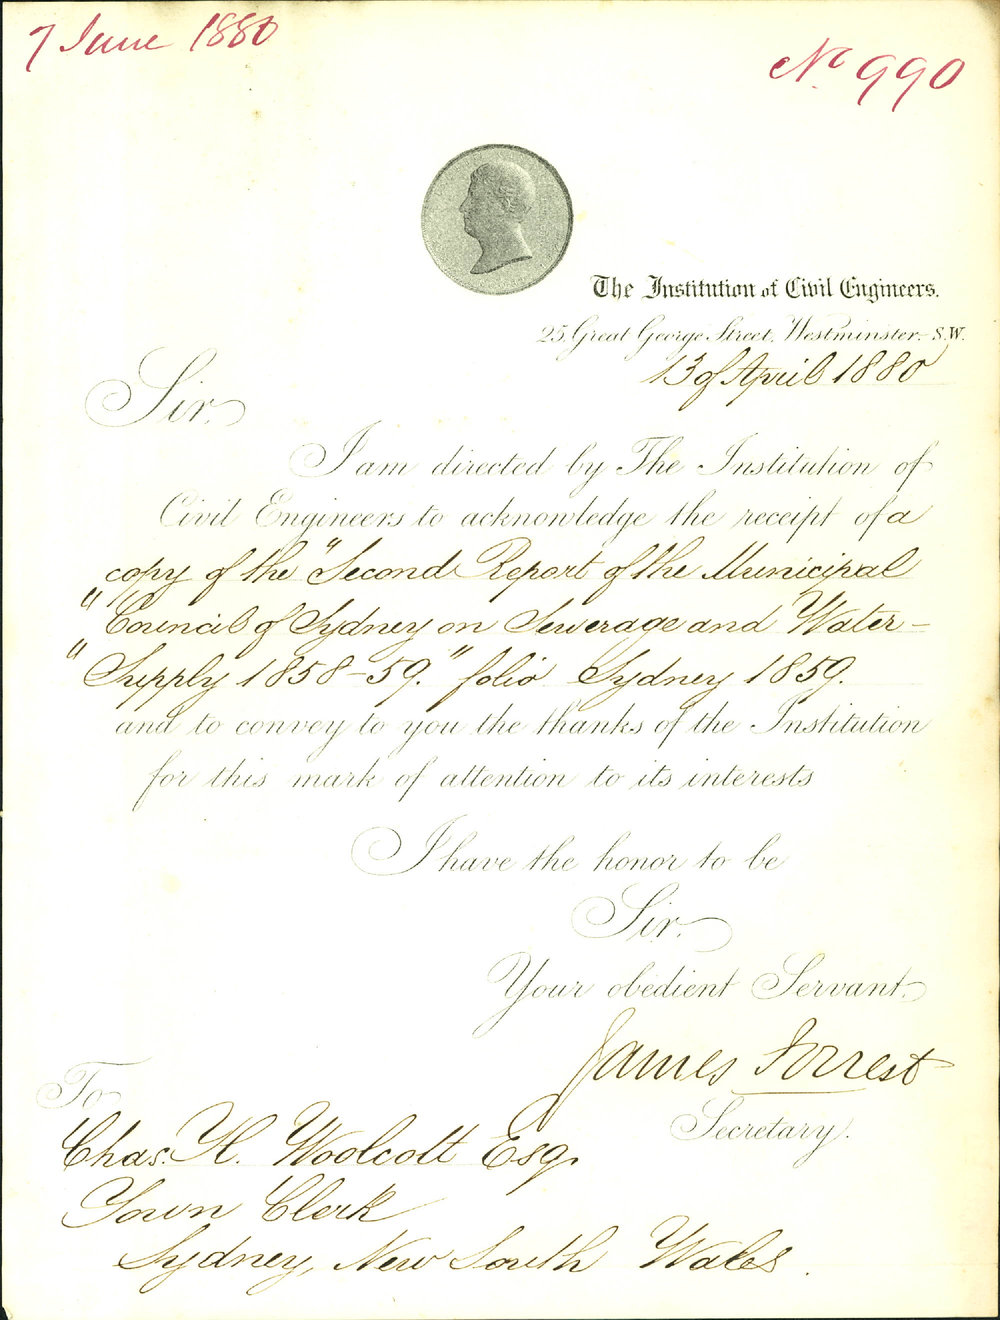 7 June 1880
No. 990
The Institution of Civil Engineers.
25, Great George Street, Westminster, S.W.
13 of April 1880
Sir,
I am directed by The Institution of
Civil Engineers to acknowledge the receipt of a
copy of the "Second Report of the Municipal
"Council of Sydney on Sewerage and Water-
"Supply 1858-59." folio Sydney 1859.
and to convey to you the thanks of the Institution
for this mark of attention to its interests
I have the honor to be
Sir,
Your obedient Servant,
James Forrest
Secretary.
To
Chas. H. Woolcott Esq.
Town Clerk
Sydney, New South Wales.